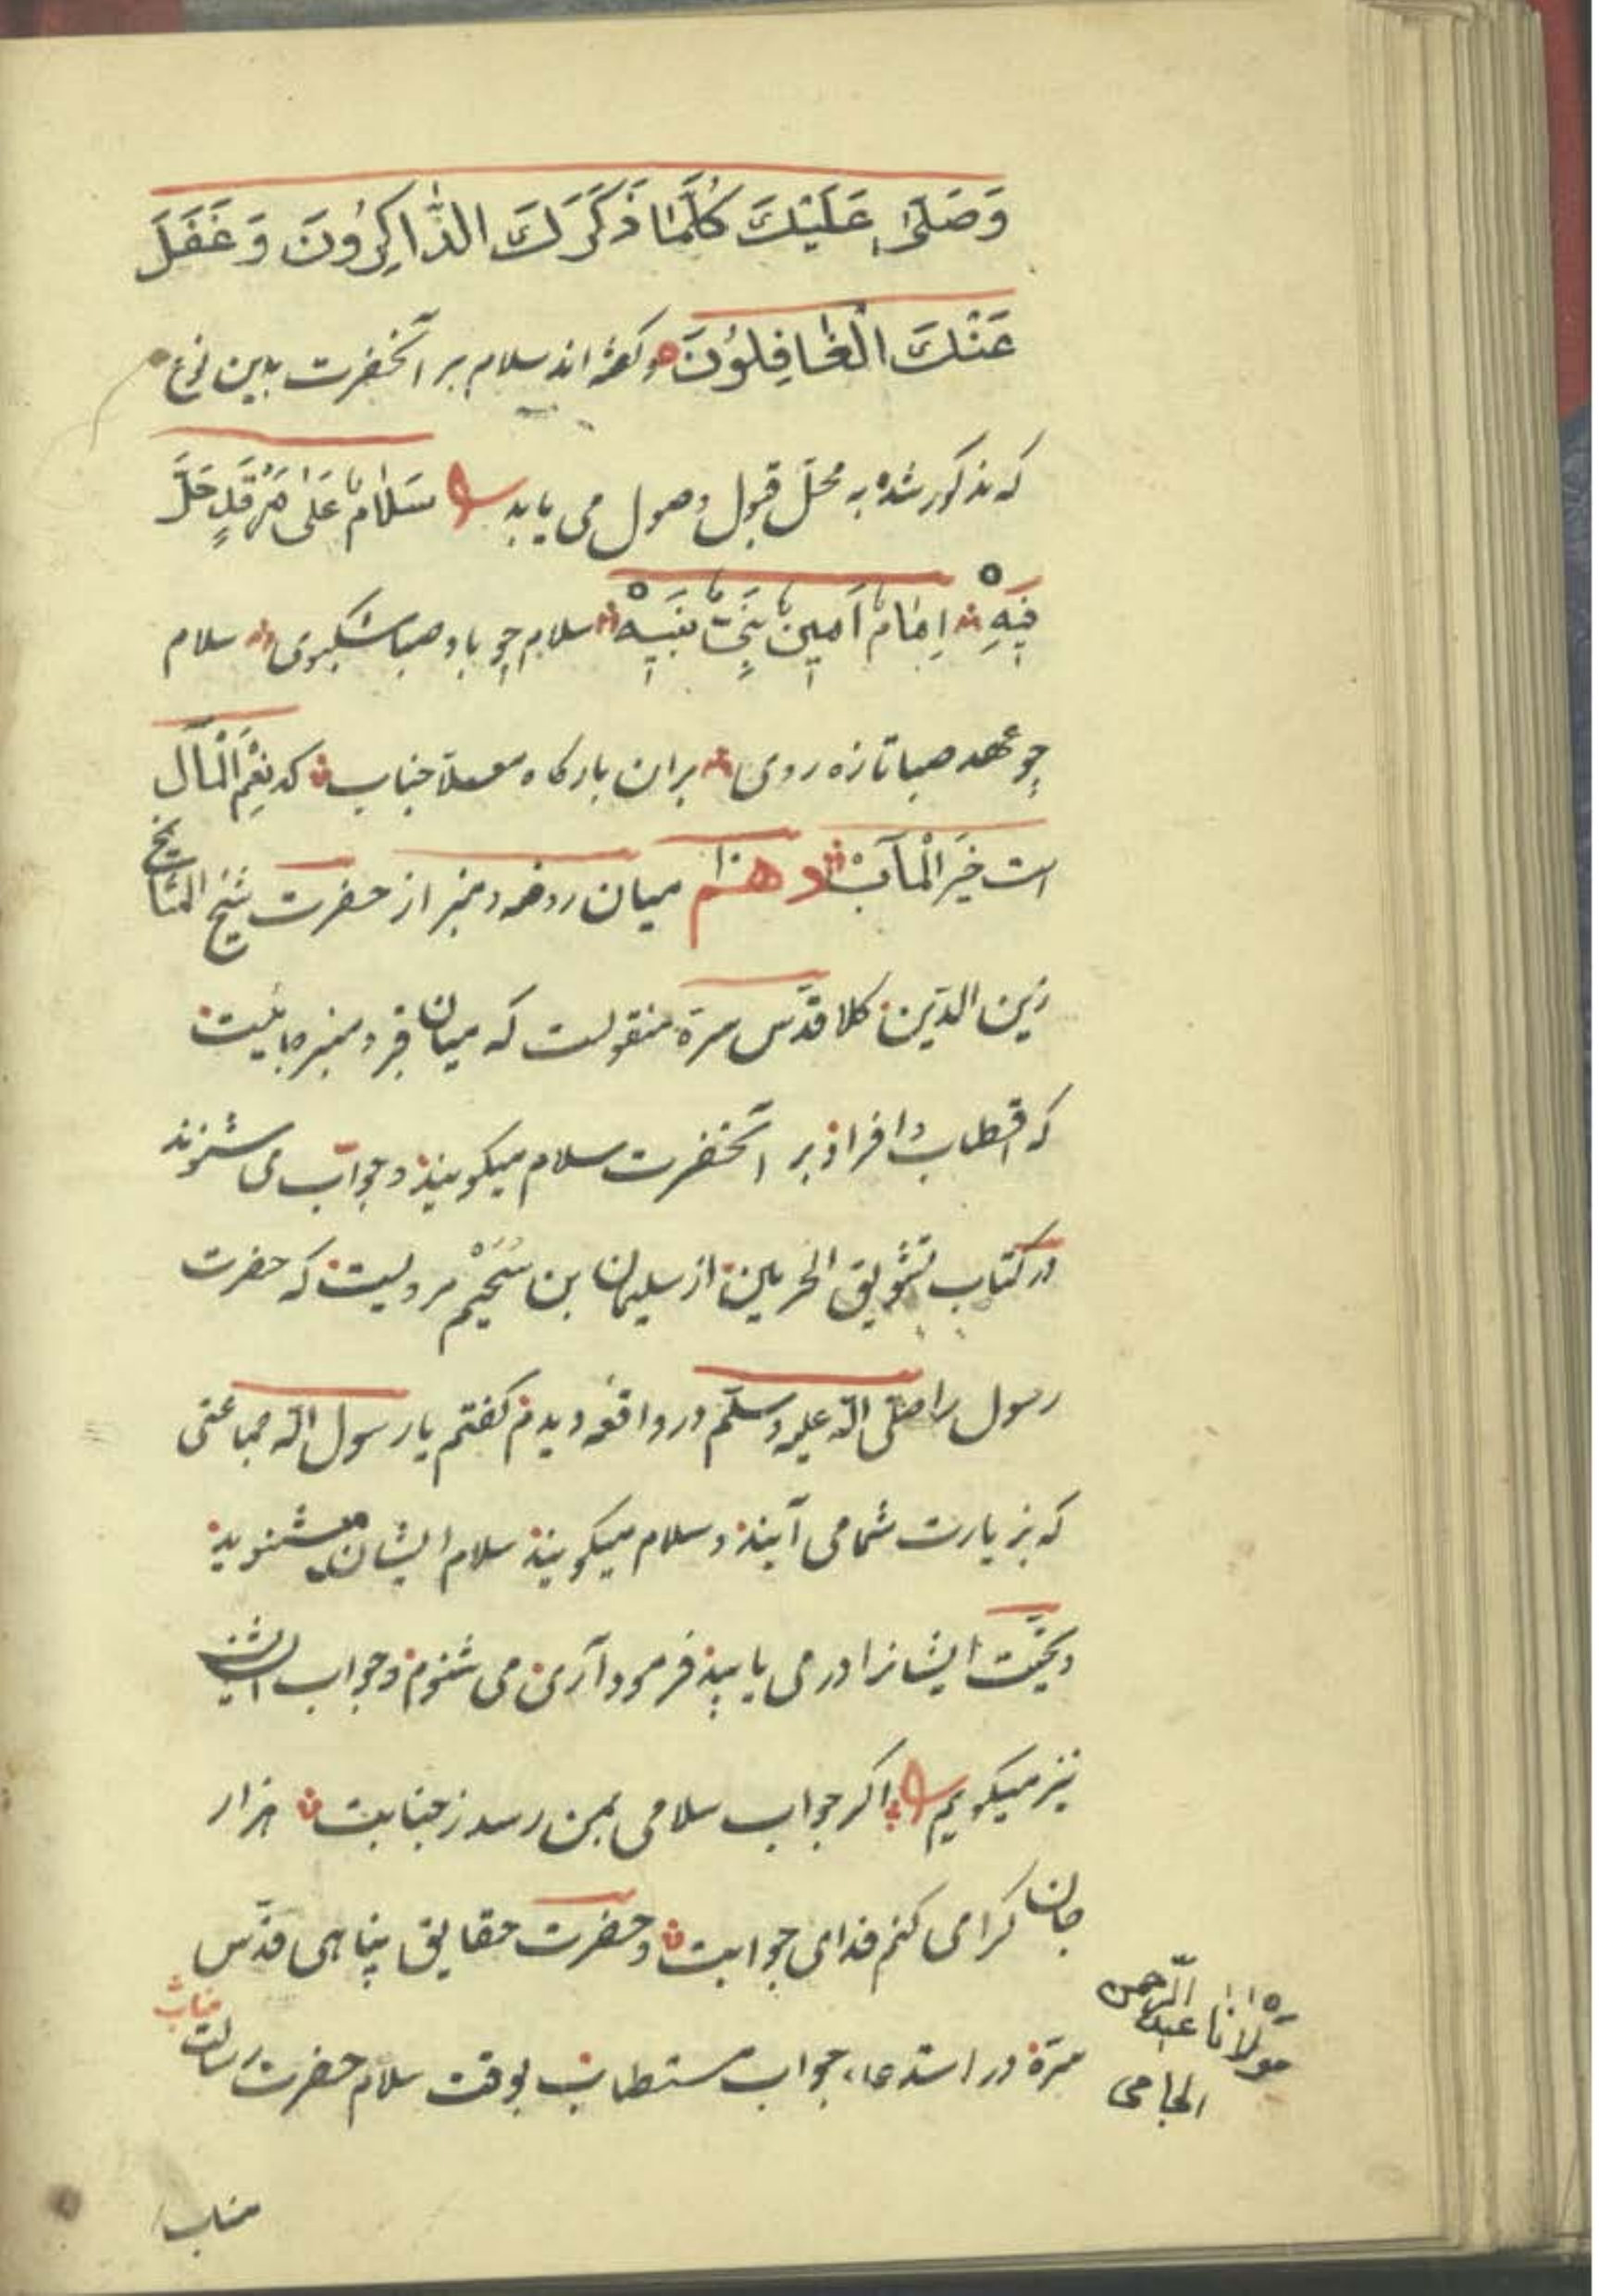 وَصَلَّى عَلَيْكَ كُلَّمَا ذَكَرَكَ الذَّاكِرُونَ وَغَفَلَ
عَنْكَ الْغَافِلُونَ وكفته اند سلام بر آنحضرت بدين نوع
كه مذكور شده به محلّ قبول وصول مى يابد سَلَامٌ عَلَى مَرْقَدٍ حَلَّ
فِيهِ اِمَامٌ اَمِينٌ نَبِيهْ سلام چو باد صبا مشكبوى سلام
چو عهد صبا تازه روى بران باركاه معلّا جناب كه نِعْمَ الْمَآل
است خَيْرَ الْمَآبْ دهم ميان روضه ومنبر از حضرت شيخ المشايخ
زين الدّين كلا قدّس سرّه منقولست كه ميان قبر ومنبر جائيست
كه اقطاب وافراد بر آنحضرت سلام ميكويند وجواب مى شنوند
در كتاب تشويق الحرمين از سليمان بن سُحَيْم مرويست كه حضرت
رسول را صلّى الله عليه وسلّم در واقعه ديدم كفتم يا رسول الله جماعتى
كه بزيارت شما مى آيند وسلام ميكويند سلام ايشان ميشنويد
وتحيّت ايشانرا در مى يابيد فرمود آرى مى شنوم وجواب ايشان
نيز ميكويم اكر جواب سلامى بمن رسد ز جنابت هزار
جان كرامى كنم فداى جوابت وحضرت حقايق پناهى قدّس
سرّه در استدعاء جواب مستطاب بوقت سلام حضرت رسالت
جناب
مولانا عبد الرّحمن
الجامى
مناب